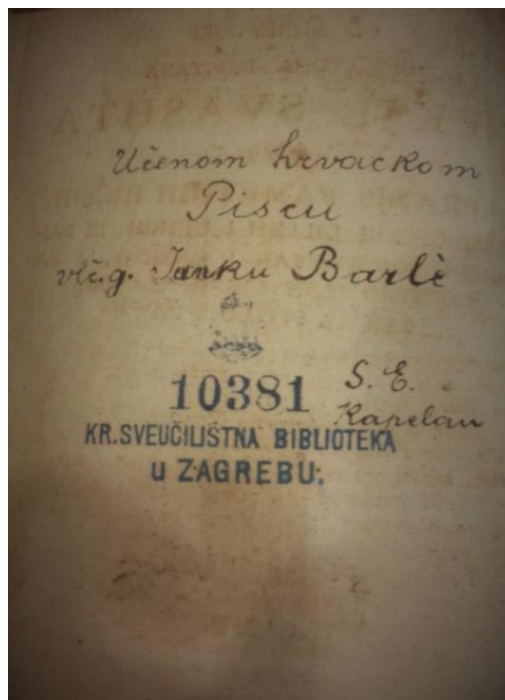 Učenom hrvackom
Piscu
vlč. g. Janku Barlè
10381
S. E.
Kapelan
KR. SVEUČILIŠTNA BIBLIOTEKA
U ZAGREBU.